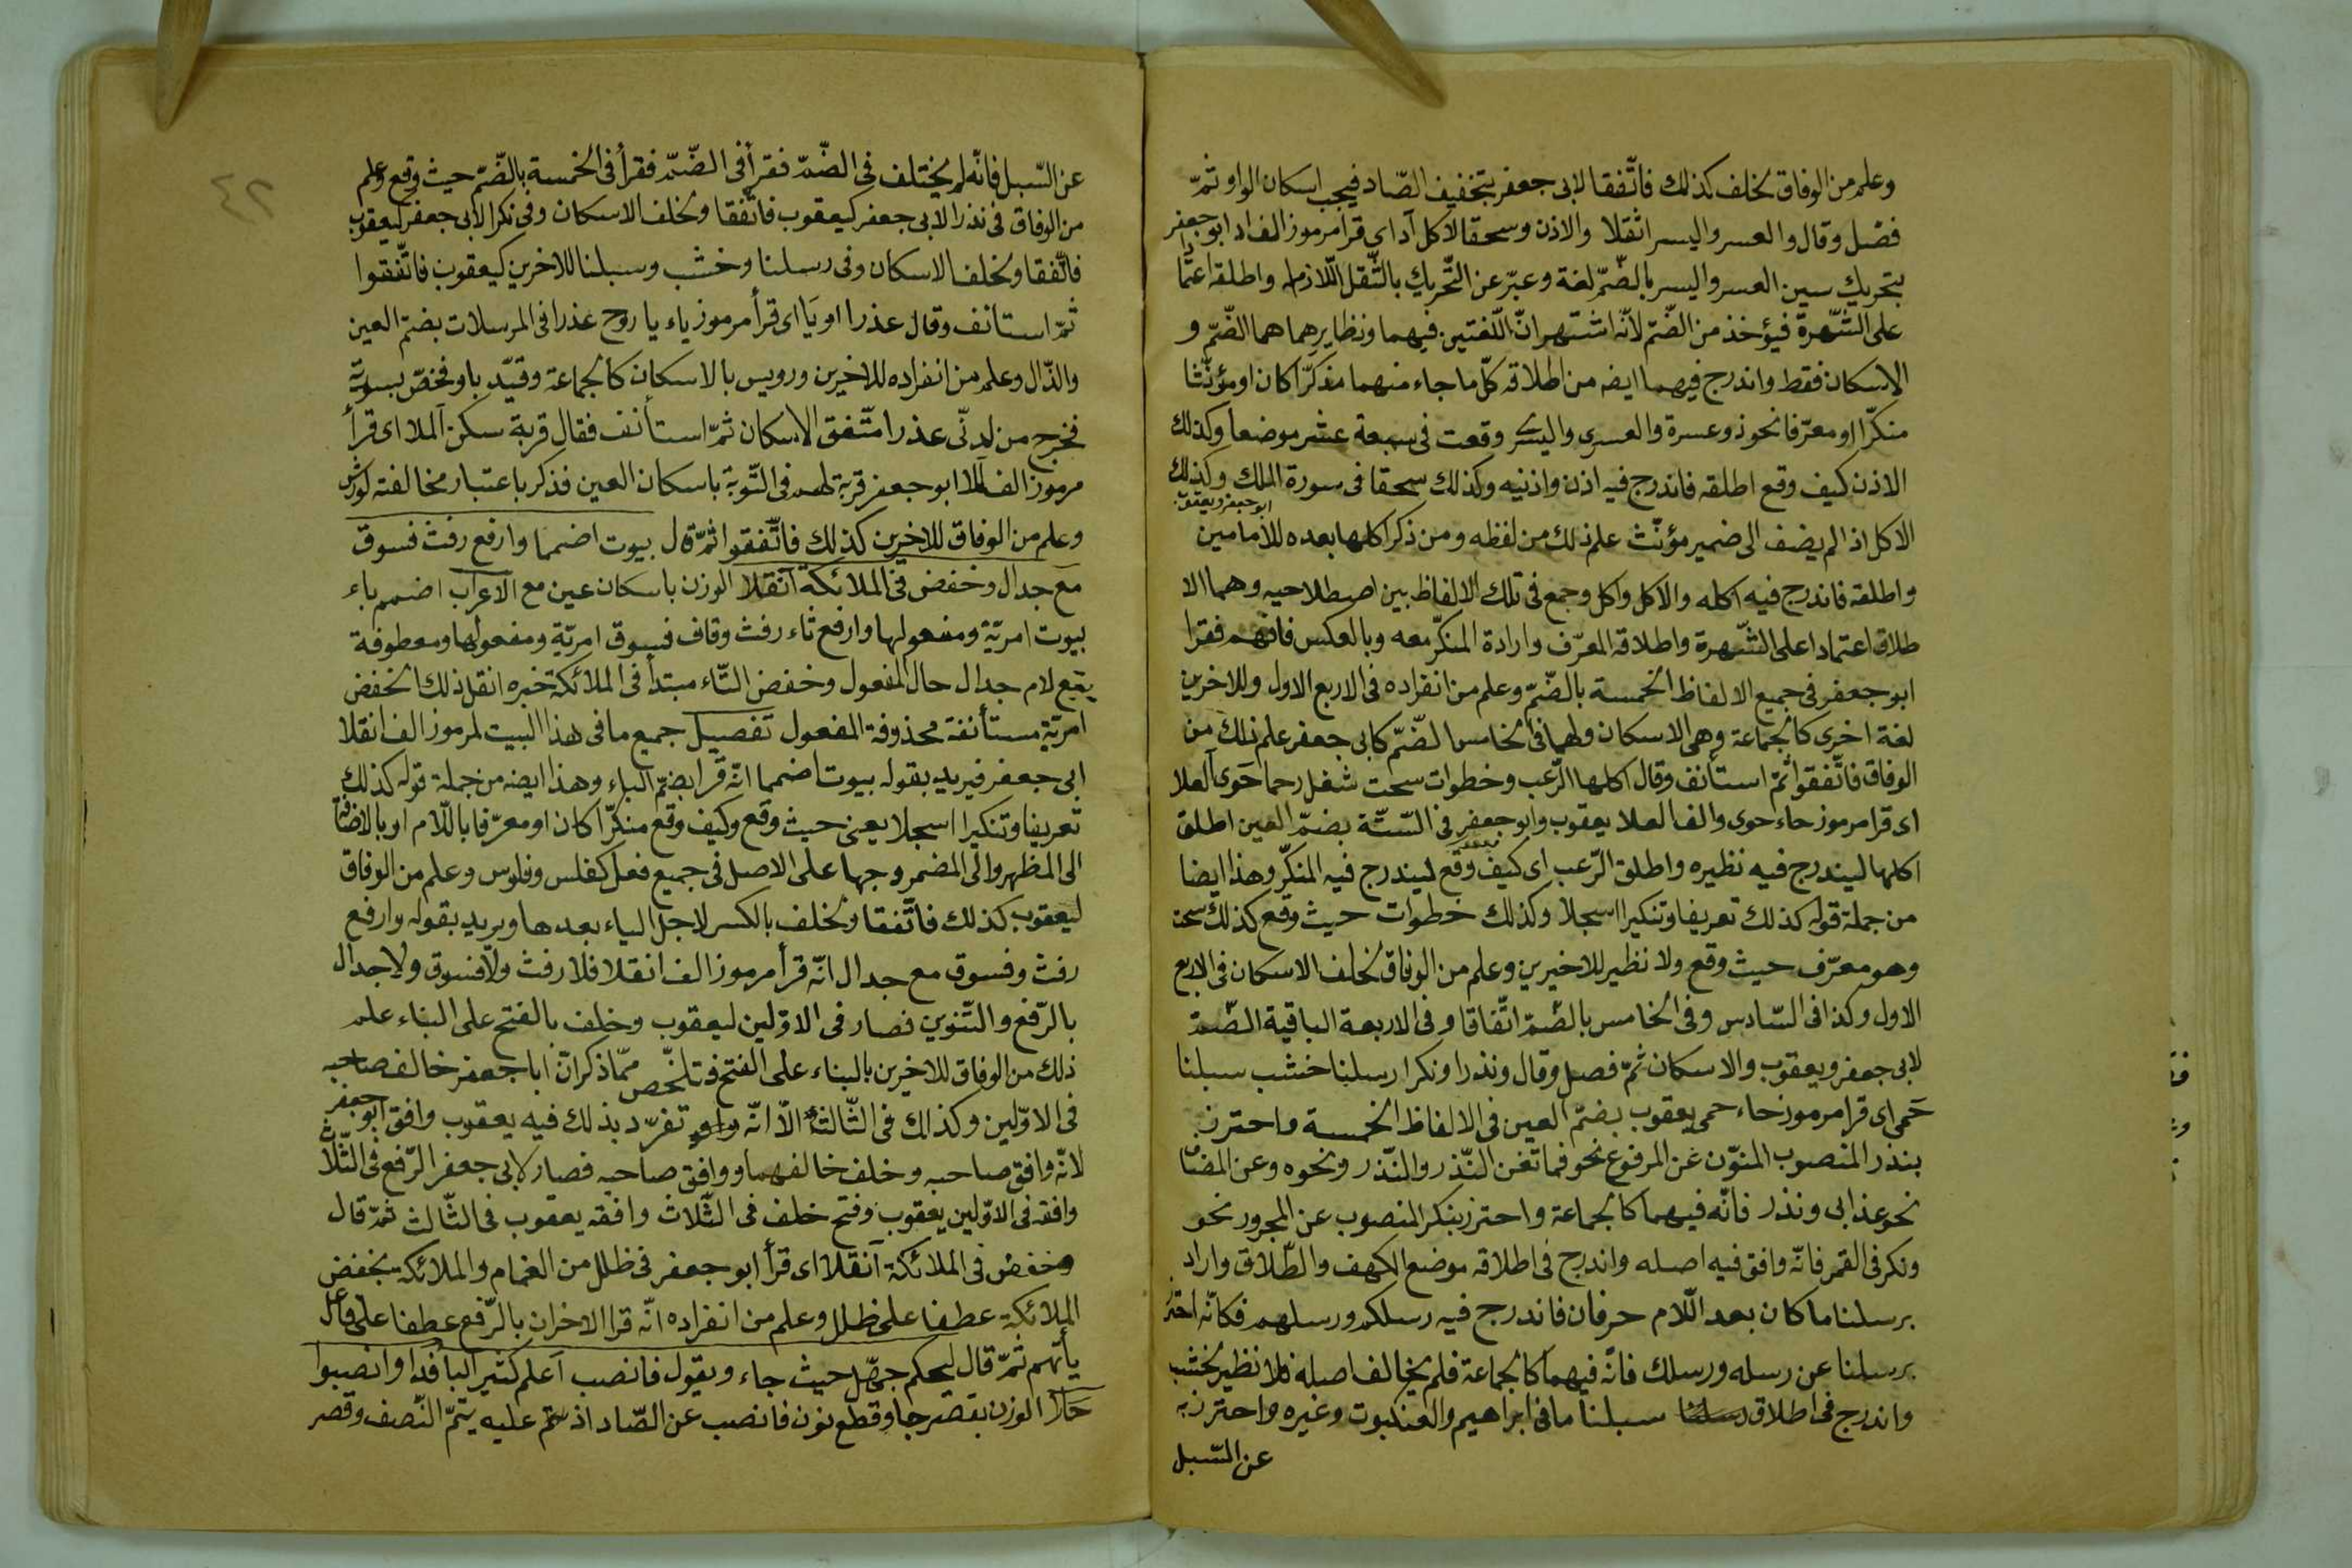 وعلم من الوفاق لخلف كذلك فاتّفقا لابى جعفر بتخفيف الصّاد فيجب اسكان الواو ثمّ
فصّل وقال والعسر واليسر اثقلا والاذن وسحقا الاكل اد اى قرا مرموز الف اد ابو جعفر
بتحريك سين العسر واليسر بالضّمّ لغة وعبّر عن التّحريك بالثّقل اللّازم له واطلقه اعتمادا
على الشّهرة فيؤخذ من الضّمّ لانّه اشتهر انّ اللّغتين فيهما ونظايرهما هما الضّمّ و
الاسكان فقط واندرج فيهما ايضه من اطلاقه كلّ ما جاء منهما مذكّرا كان او مؤنّثا
منكّرا او معرّفا نحو ذو عسرة والعسرى واليسرى وقعت فى سبعة عشر موضعا وكذلك
الاذن كيف وقع اطلقه فاندرج فيه اذن واذنيه وكذلك سحقا فى سورة الملك وكذلك
ابو جعفر ويعقوب
الاكل اذا لم يضف الى ضمير مؤنّث علم ذلك من لفظه ومن ذكر اكلها بعده للامامين
واطلقه فاندرج فيه اكله والاكل واكل وجمع فى تلك الالفاظ بين اصطلاحيه وهما الا
طلاق اعتمادا على الشّهرة واطلاقه المعرّف وارادة المنكّر معه وبالعكس فافهم فقرا
ابو جعفر فى جميع الالفاظ الخمسة بالضّمّ وعلم من انفراده فى الاربع الاول وللاخرين
لغة اخرى كالجماعة وهى الاسكان ولهما فى الخامس الضّمّ كابى جعفر علم ذلك من
الوفاق فاتّفقوا ثمّ استأنف وقال اكلها الرّعب وخطوات سحت شغل رحما حوى العلا
اى قرا مرموز حاء حوى والف العلا يعقوب وابو جعفر فى السّتّة بضمّ العين اطلق
اكلها ليندرج فيه نظيره واطلق الرّعب اى كيف وقع ليندرج فيه المنكّر وهذا ايضا
من جملة قوله كذلك تعريفا وتنكيرا اسجلا وكذلك خطوات حيث وقع كذلك سحت
وهو معرّف حيث وقع ولا نظير للاخيرين وعلم من الوفاق لخلف الاسكان فى الاربع
الاول وكذا فى السّادس وفى الخامس بالضّمّ اتّفاقا وفى الاربعة الباقية الضّمّ
لابى جعفر ويعقوب والاسكان ثمّ فصل وقال ونذرا ونكرا رسلنا خشب سبلنا
حمى اى قرا مرموز حاء حمى يعقوب بضمّ العين فى الالفاظ الخمسة واحترز
بنذر المنصوب المنوّن عن المرفوع نحو فما تغن النّذر والنّذر ونحوه وعن المضاف
نحو عذابى ونذر فانّه فيهما كالجماعة واحترز بنكر المنصوب عن المجرور نحو
ونكر فى القمر فانّه وافق فيه اصله واندرج فى اطلاقه موضع الكهف والطّلاق واراد
برسلنا ما كان بعد اللّام حرفان فاندرج فيه رسلكم ورسلهم فكانّه احترز
برسلنا عن رسله ورسلك فانّه فيهما كالجماعة فلم يخالف اصله فلا نظير لخشب
واندرج فى اطلاق سبلنا ما فى ابراهيم والعنكبوت وغيره واحترز به
عن السّبل
٤٢
عن السّبل فانّه لم يختلف فى الضّمّ فقرأ فى الضّمّ فقرأ فى الخمسة بالضّمّ حيث وقع وعلم
من الوفاق فى نذرا لابى جعفر كيعقوب فاتّفقا ولخلف الاسكان وفى نكرا لابى جعفر كيعقوب
فاتّفقا ولخلف الاسكان وفى رسلنا وخشب وسبلنا للاخرين كيعقوب فاتّفقوا
ثمّ استانف وقال عذرا او يا اى قرأ مرموز ياء يا روح عذرا فى المرسلات بضمّ العين
والذّال وعلم من انفراده للاخرين ورويس بالاسكان كالجماعة وقيّد باو فخصّ بسورته
فخرج من لدنّى عذرا متّفق الاسكان ثمّ استأنف فقال قربة سكن الملا اى قرأ
مرموز الف الملا ابو جعفر قربة لهم فى التّوبة باسكان العين فذكر باعتبار مخالفته لورش
وعلم من الوفاق للاخرين كذلك فاتّفقوا ثمّ قال بيوت اضمما وارفع رفث فسوق
مع جدال وخفض فى الملائكة انقلا الوزن باسكان عين مع الاعراب اضمم باء
بيوت امريّة ومفعولها وارفع ثاء رفث وقاف فسوق امريّة ومفعولها ومعطوفة
يقع لام جدال حال المفعول وخفض التّاء مبتدأ فى الملائكة خبره انقل ذلك الخفض
امريّة مستأنفة محذوفة المفعول تفصيل جميع ما فى هذا البيت لمرموز الف انقلا
ابى جعفر فيريد بقوله بيوت اضمما انّه قرا بضمّ الباء وهذا ايضه من جملة قوله كذلك
تعريفا وتنكيرا اسجلا يعنى حيث وقع وكيف وقع منكّرا كان او معرّفا باللّام او بالاضافة
الى المظهر والى المضمر وجها على الاصل فى جميع فعل كفلس وفلوس وعلم من الوفاق
ليعقوب كذلك فاتّفقا ولخلف بالكسر لاجل الياء بعدها ويريد بقوله وارفع
رفث وفسوق مع جدال انّه قرأ مرموز الف انقلا فلا رفث ولا فسوق ولا جدال
بالرّفع والتّنوين فصار فى الاوّلين ليعقوب وخلف بالفتح على البناء علم
ذلك من الوفاق للاخرين بالبناء على الفتح فتلخّص ممّا ذكر انّ ابا جعفر خالف صاحبه
فى الاوّلين وكذلك فى الثّالث الّا انّه تفرّد بذلك فيه يعقوب وافق ابو جعفر
لانّه وافق صاحبه وخلف خالفهما ووافق صاحبه فصار لابى جعفر الرّفع فى الثّلاث
وافقه فى الاوّلين يعقوب وفتح خلف فى الثّلاث وافقه يعقوب فى الثّالث ثمّ قال
وخفض فى الملائكة انقلا اى قرأ ابو جعفر فى ظلل من الغمام والملائكة بخفض
الملائكة عطفا على ظلل وعلم من انفراده انّه قرا الاخران بالرّفع عطفا على فاعل
يأتهم ثمّ قال ليحكم جهّل حيث جاء ويقول فانصب اعلم كثير البا فدا وانصبوا
حلا الوزن بقصر جا وقطع نون فانصب عن الصّاد اذ تمّ عليه يتمّ النّصف وقصر